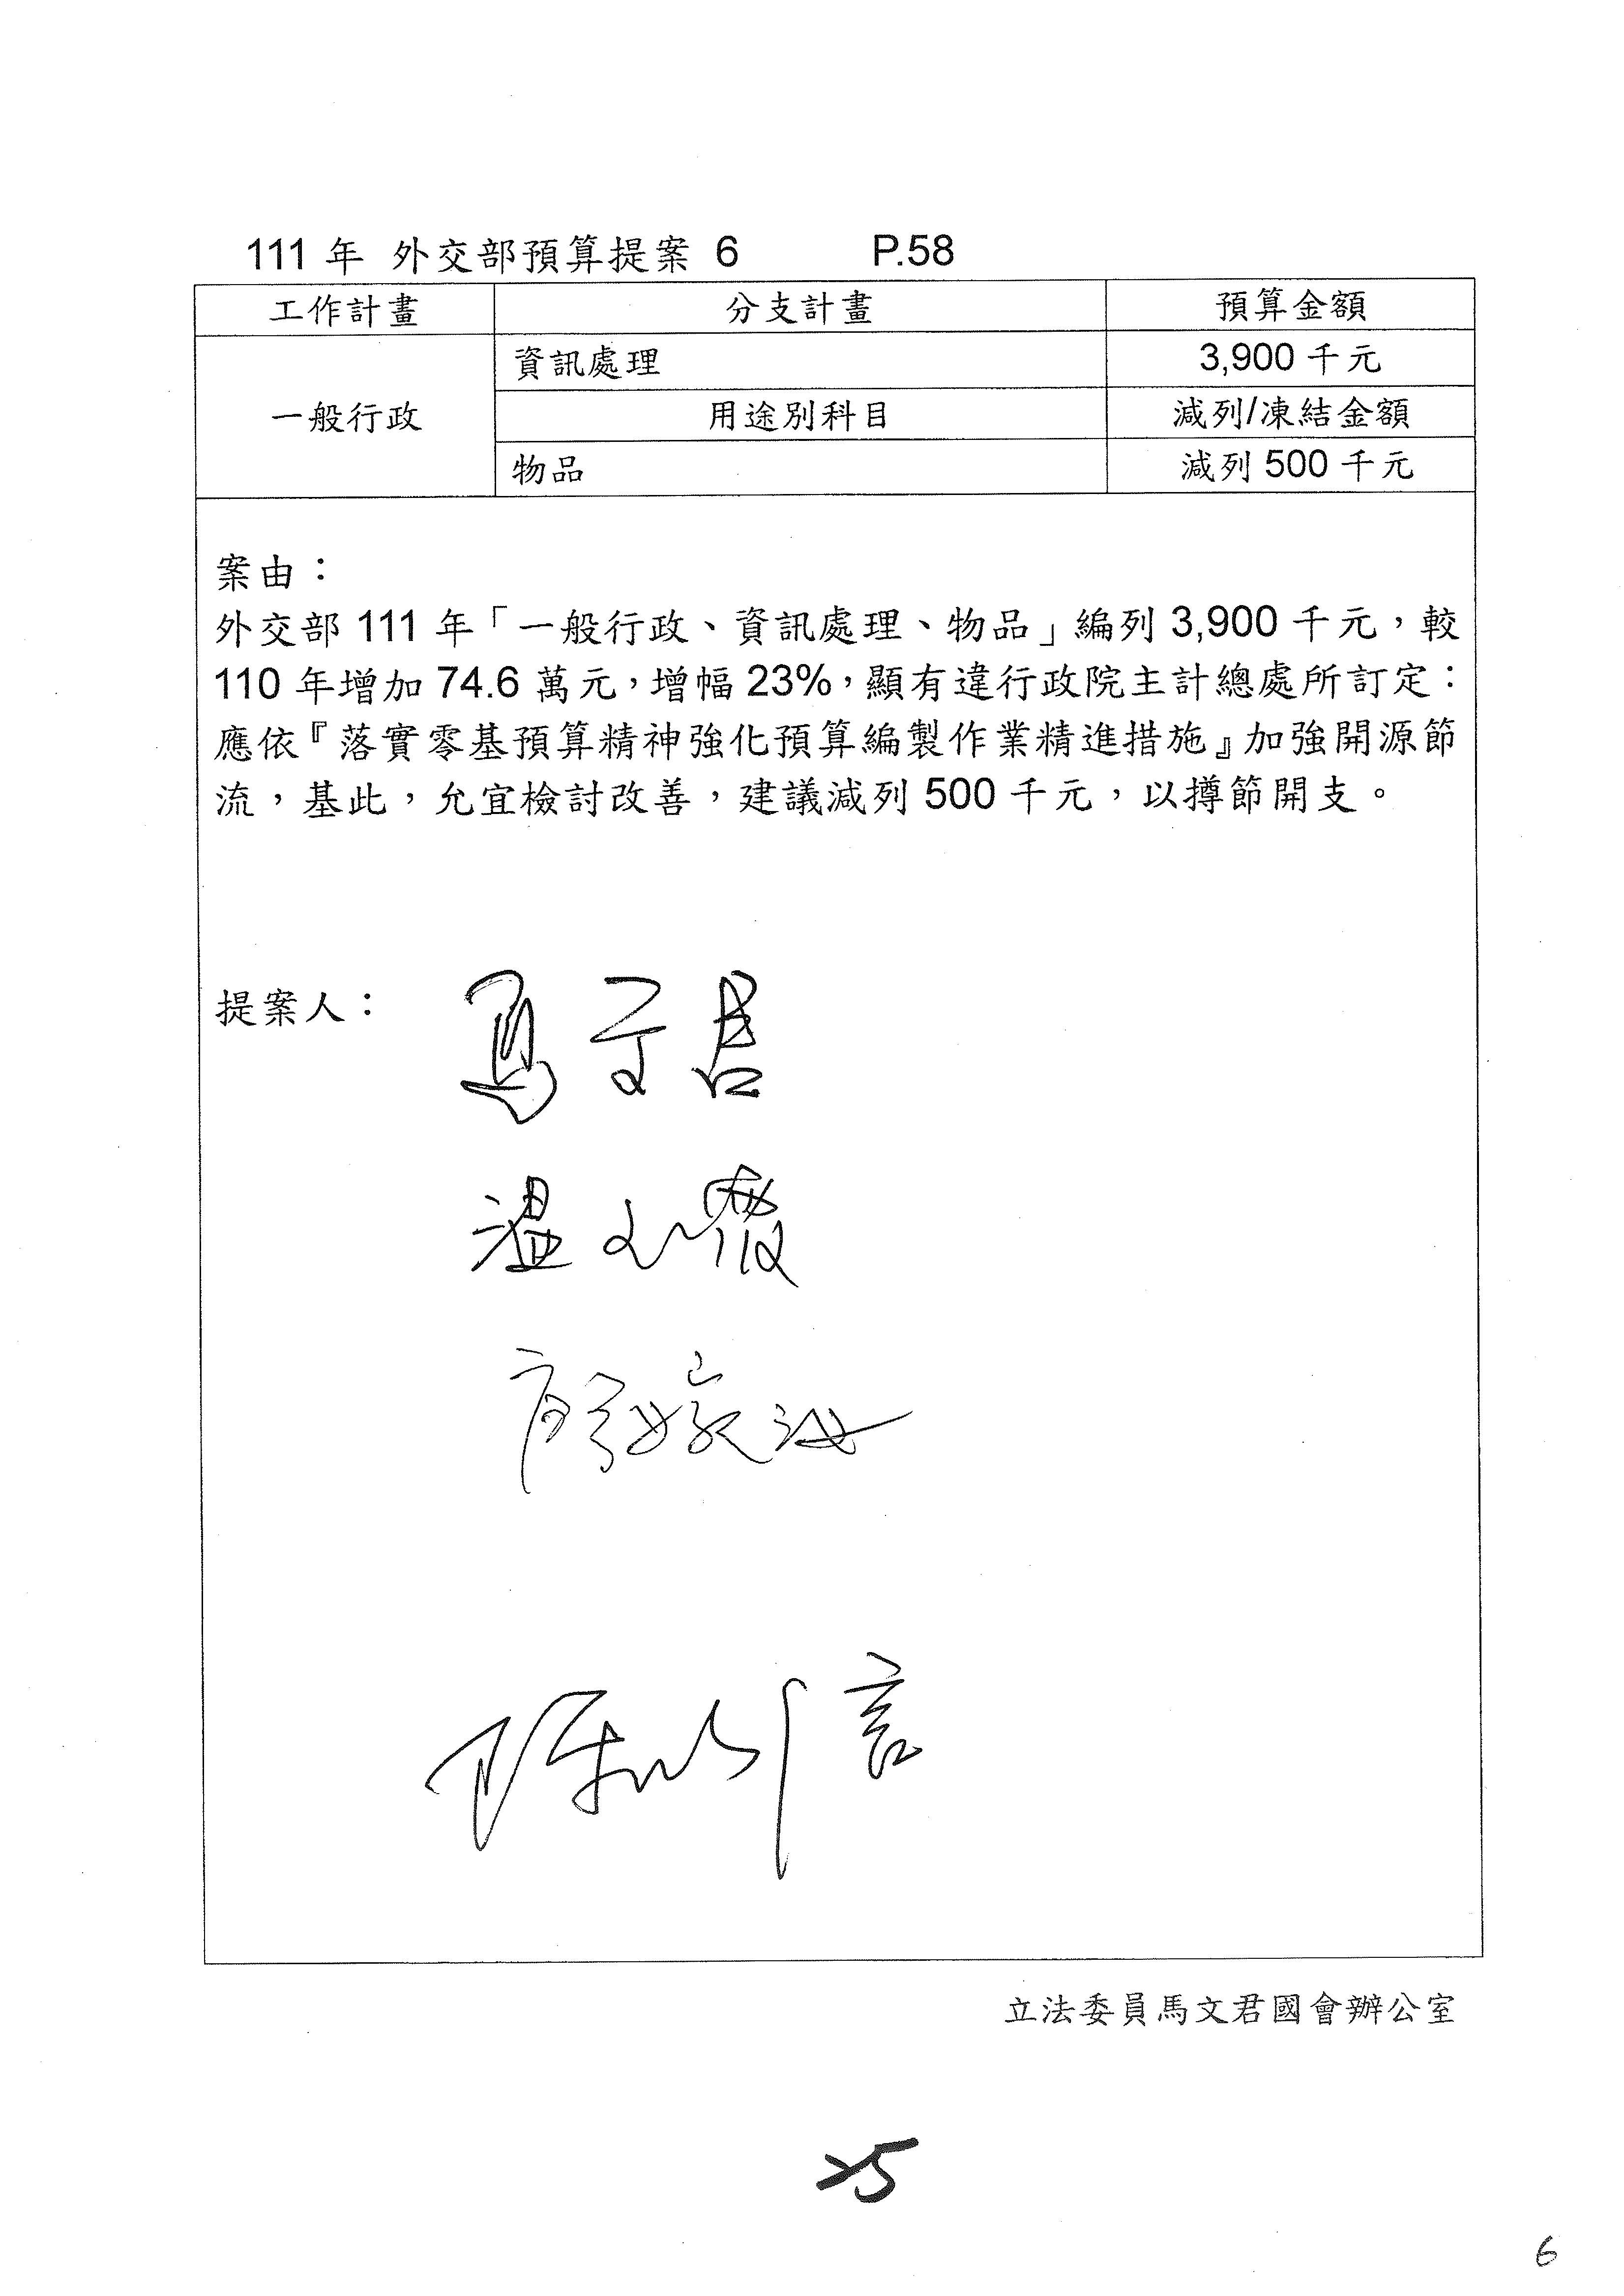 111 年 外交部預算提案 6 P.58
工作計畫 分支計畫 預算金額
一般行政 資訊處理 3,900 千元
用途別科目 減列/凍結金額
物品 減列 500 千元
案由：
外交部 111 年「一般行政、資訊處理、物品」編列 3,900 千元，較
110 年增加 74.6 萬元，增幅 23%，顯有違行政院主計總處所訂定：
應依『落實零基預算精神強化預算編製作業精進措施』加強開源節
流，基此，允宜檢討改善，建議減列 500 千元，以撙節開支。
提案人：
馬文君
溫玉霞
廖婉汝
陳以信
立法委員馬文君國會辦公室
25
6